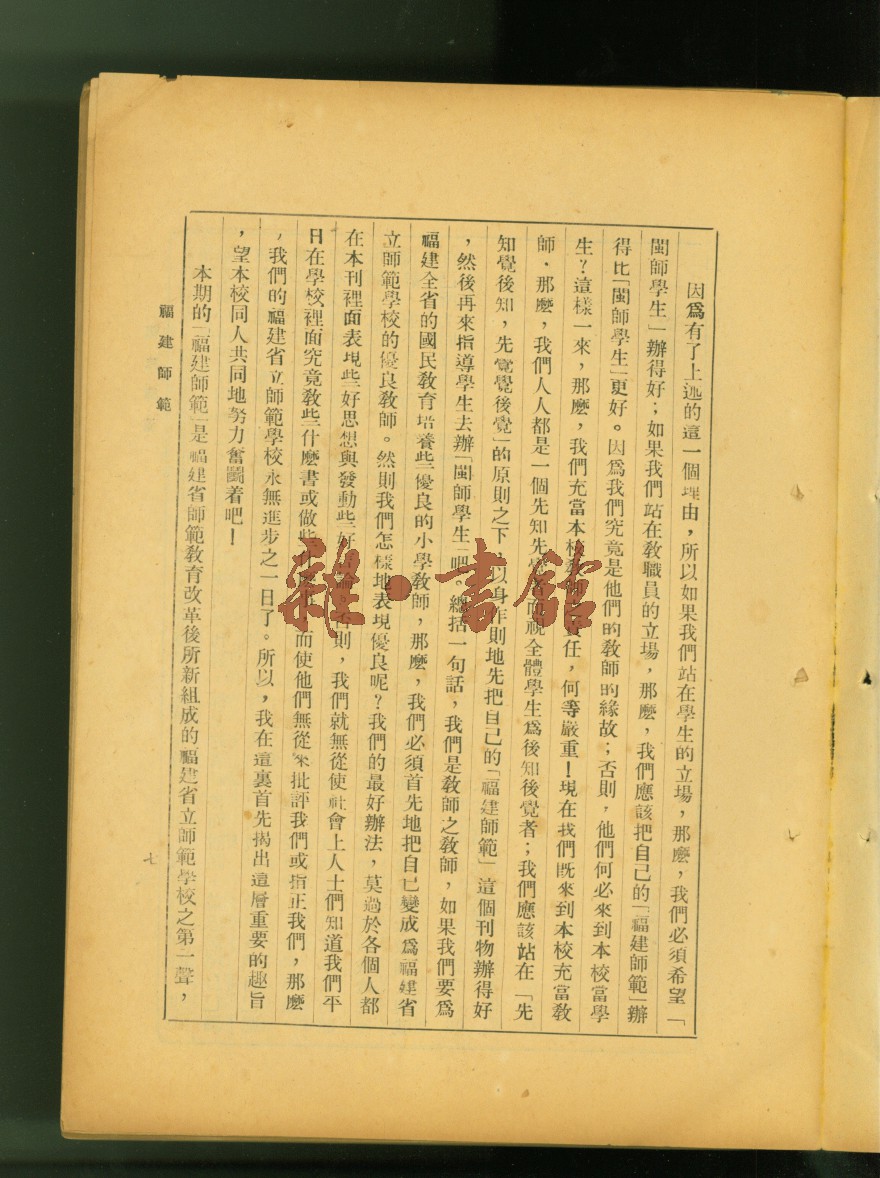 因爲有了上述的這一個理由，所以如果我們站在學生的立場，那麽，我們必須希望「
閩師學生」辦得好；如果我們站在敎職員的立場，那麽，我們應該把自己的「福建師範」辦
得比「閩師學生」更好。因爲我們究竟是他們的敎師的緣故；否則，他們何必來到本校當學
生？這樣一來，那麽，我們充當本校敎師之責任，何等嚴重！現在我們旣來到本校充當敎
師，那麽，我們人人都是一個先知先覺者而視全體學生爲後知後覺者；我們應該站在「先
知覺後知，先覺覺後覺」的原則之下，以身作則地先把自己的「福建師範」這個刊物辦得好
，然後再來指導學生去辦「閩師學生」吧。總括一句話，我們是敎師之敎師，如果我們要爲
福建全省的國民敎育培養些優良的小學敎師，那麽，我們必須首先地把自己變成爲福建省
立師範學校的優良敎師。然則我們怎樣地表現優良呢？我們的最好辦法，莫過於各個人都
在本刊裡面表現些好思想與發動些好，否則，我們就無從使社會上人士們知道我們平
日在學校裡面究竟敎些什麽書或做些而使他們無從來批評我們或指正我們，那麽
，我們的福建省立師範學校永無進步之一日了。所以，我在這裏首先揭出這層重要的趣旨
，望本校同人共同地努力奮鬭着吧！
本期的「福建師範」是福建省師範敎育改革後所新組成的福建省立師範學校之第一聲，
福建師範
七
雜·書館